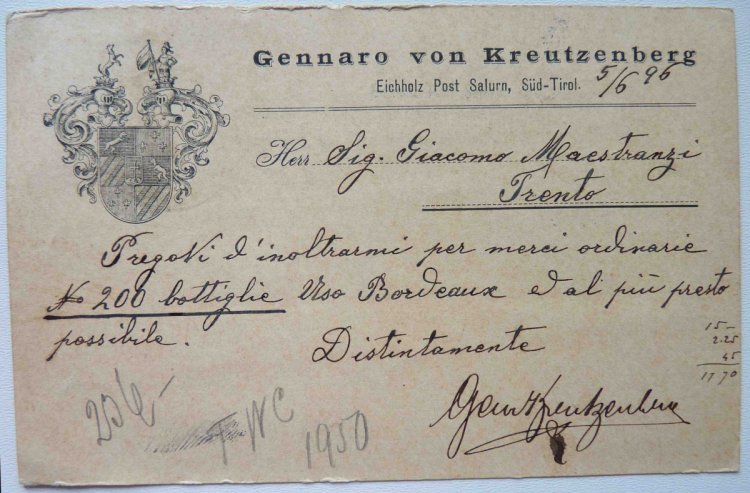 Gennaro von Kreutzenberg
Eichholz Post Salurn, Süd-Tirol. 5/6 96
Herr Sig. Giacomo Maestranzi
Trento
PregoVi d'inoltrarmi per merci ordinarie
No 200 bottiglie Uso Bordeaux ed al più presto
possibile.
Distintamente
15-
2.25
45
17 70
Gen Kreutzenberg
WC
1950